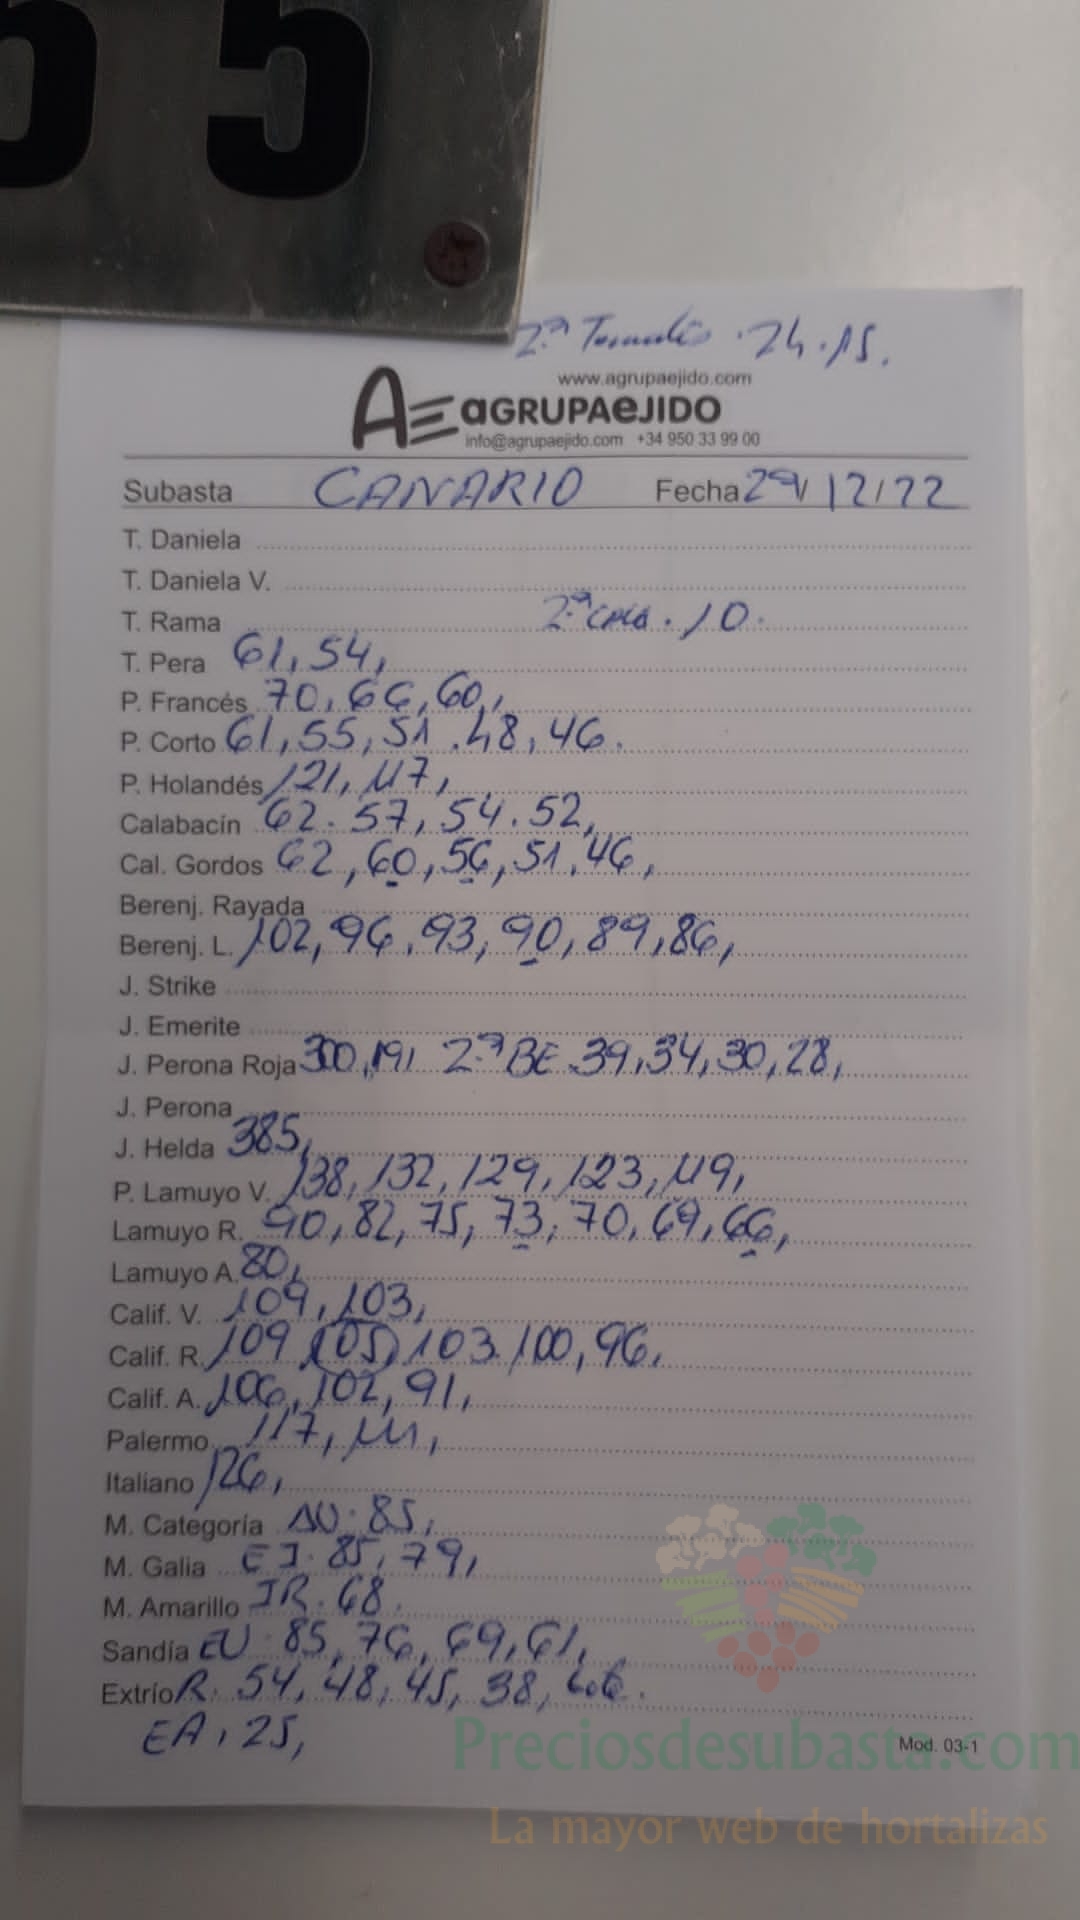 55
2ª Tomate . 24 . 15.
www.agrupaejido.com
AE aGRUPAeJIDO
info@agrupaejido.com +34 950 33 99 00
Subasta CANARIO Fecha 29/12/22
T. Daniela
T. Daniela V.
T. Rama 2ª CALA . 10.
T. Pera 61, 54,
P. Francés 70, 66, 60,
P. Corto 61, 55, 51. 48, 46.
P. Holandés 121, 117,
Calabacín 62. 57, 54. 52,
Cal. Gordos 62, 60, 56, 51, 46,
Berenj. Rayada
Berenj. L. 102, 96, 93, 90, 89, 86,
J. Strike
J. Emerite
J. Perona Roja 300, 191 2ª BE. 39, 34, 30, 28,
J. Perona
J. Helda 385,
P. Lamuyo V. 138, 132, 129, 123, 119,
Lamuyo R. 90, 82, 75, 73, 70, 69, 66,
Lamuyo A. 80,
Calif. V. 109, 103,
Calif. R. 109 (105) 103. 100, 96.
Calif. A. 106, 102, 91,
Palermo 117, 111,
Italiano 126,
M. Categoría 85,
M. Galia EJ. 85, 79,
M. Amarillo JR. 68.
Sandía EU. 85, 76, 69, 61,
Extrío R. 54, 48, 45, 38,
EA, 25,
Mod. 03-1
Preciosdesubasta.com
La mayor web de hortalizas